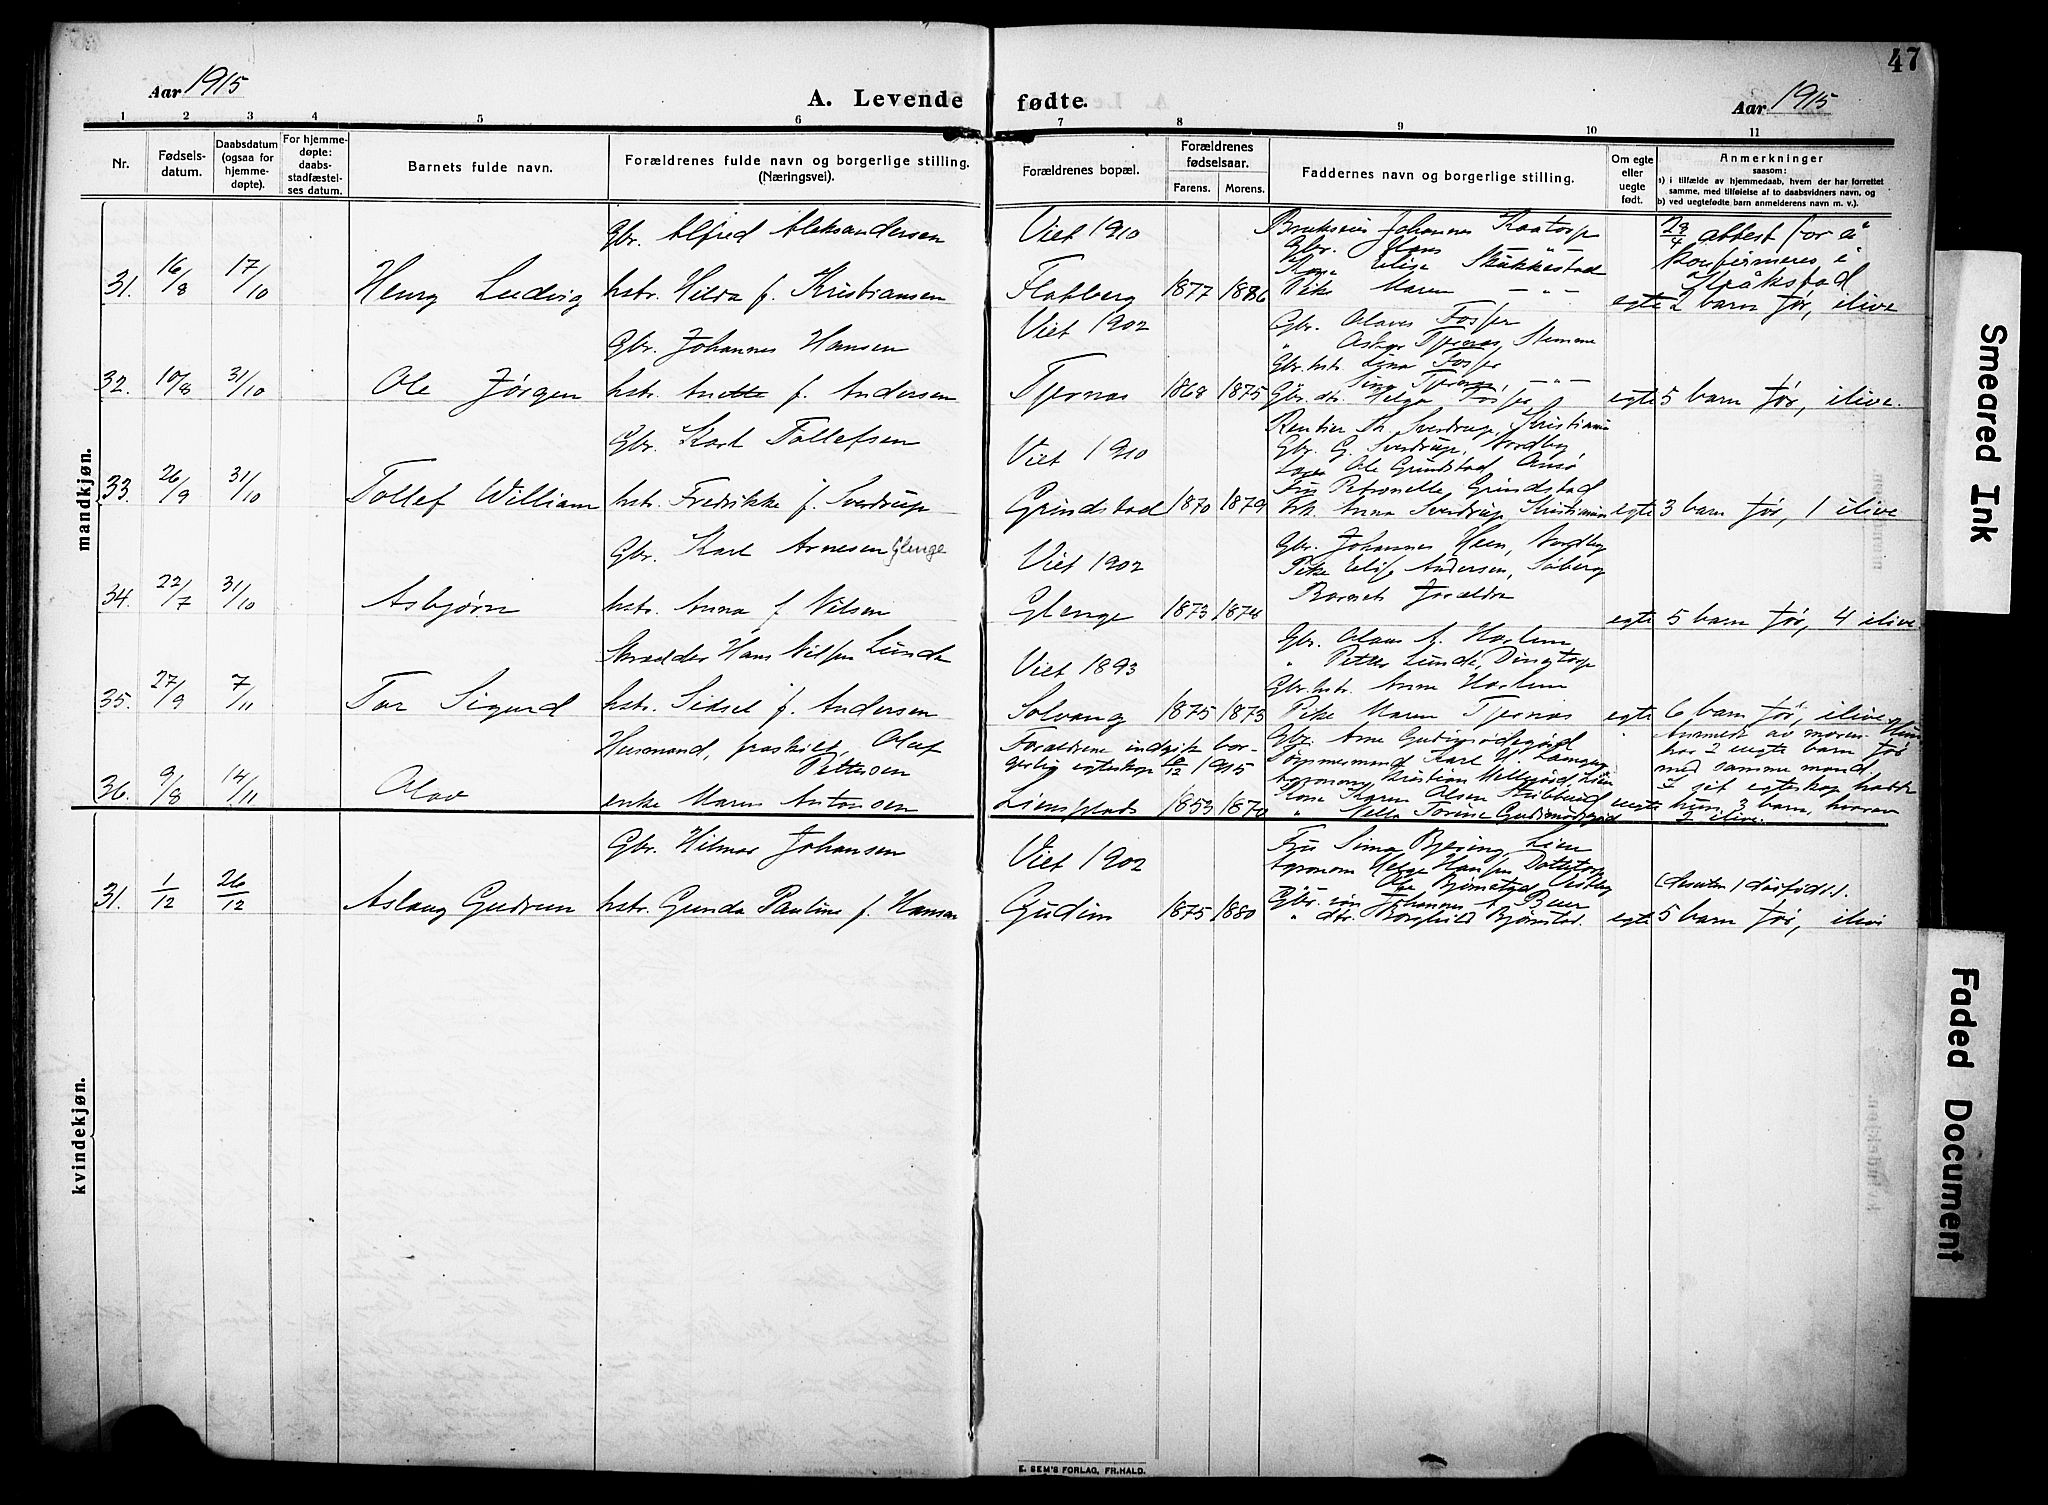 47
Aar 1915
A. Levende fødte.
Aar 1915
1 2 3 4 5 6 7 8 9 10 11
Nr.
Fødsels-
datum.
Daabsdatum
(ogsaa for
hjemme-
døpte).
For hjemme-
døpte:
daabs-
stadfæstel-
ses datum.
Barnets fulde navn.
Forældrenes fulde navn og borgerlige stilling.
(Næringsvei).
Forældrenes bopæl.
Forældrenes
fødselsaar.
Farens. Morens.
Faddernes navn og borgerlige stilling.
Om egte
eller
uegte
født.
Anmerkninger
saasom:
a) i tilfælde av hjemmedaab, hvem der har forrettet
samme, med tilføielse af to daabsvidners navn, og
b) ved uegtefødte barn anmelderens navn m. v.).
mandkjøn.
Gbr. Alfred Aleksandersen
Viet 1910
Johannes Kaatorp
Gbr. Hans
Kone Elise Stukkestad
Pike Maren — " —
29/4 attest for å
konfirmeres i
Kråkstad
31. 16/8 17/10 Henry Ludvig hstr. Hilda f. Kristiansen Flatberg 1877 1886 egte 2 barn før, ilive
Gbr. Johannes Hansen
Viet 1902
Gbr. Olaves Fosser
" Askar Tjernæs, Stemme
Gbr. hstr. Lina Fosser
" Lina Tjernæs, — " —
32. 10/8 31/10 Ole Jørgen hstr. Anette f. Andersen Tjernæs 1868 1875 Gbr. dtr. Helga Fosser egte 5 barn før, ilive.
Gbr. Karl Tollefsen
Viet 1910
Rentier Th. Sverdrup, Kristiania
Gbr. G. Sverdrup, Nordby
Ole Grindstad
Fru Petronelle Grindstad
33. 26/9 31/10 Tollef William hstr. Fredrikke f. Sverdrup Grindstad 1870 1879 Frk. Anna Sverdrup Kristiania egte 3 barn før, 1 ilive
Gbr. Karl Arnesen Glenge
Viet 1902
Gbr. Johannes Heen, Nordby
Pike Elise Andersen, Søberg
Barnets forældre
34. 22/7 31/10 Asbjørn hstr. Anna f. Nilsen Glenge 1873 1874 egte 5 barn før, 4 ilive
Skrædder Hans Nilsen Lunde
Viet 1893
Gbr. Olaus A. Haslem
" Petter Lunde, Dingtorp
Gbr. hstr. Anna Haslem
35. 27/9 7/11 Tor Sigurd hstr. Sidsel f. Andersen Solvang 1875 1873 Pike Maren Tjernæs egte 6 barn før, ilive
Husmand, fraskilt, Oluf
Pettersen
Forældrene indgik bor-
gerlig egteskap 10/12 1915
Gbr. Arne Gudimsødegård
Tømmermand Karl H.
Agronom Kristian
Kone Karen Olsen Stubberud
" Torine Gudimsødegård
Anmeldt av moren. Hun
har 2 uegte barn før
med samme mand.
I sit egteskap hadde
hun 3 barn, hvorav
2 ilive.
36. 9/8 14/11 Olav enke Maren Antonsen Liensplads 1853 1870 uegte
kvindekjøn.
Gbr. Hilmar Johansen
Viet 1902
Fru Signa Bjering, Lien
Agronom Helge Hansen Dottetorp
Ole Bjørnstad Aasberg
Gbr. søn Johannes A. Buer
(desuten 1 dødfødt).
31. 1/12 26/12 Aslaug Gudrun hstr. Gunda Pauline f. Hansen Gudim 1875 1880 " dtr. Borghild Bjørnstad. egte 5 barn før, ilive
E. SEM'S FORLAG, FR.HALD.
Smeared Ink
Faded Document